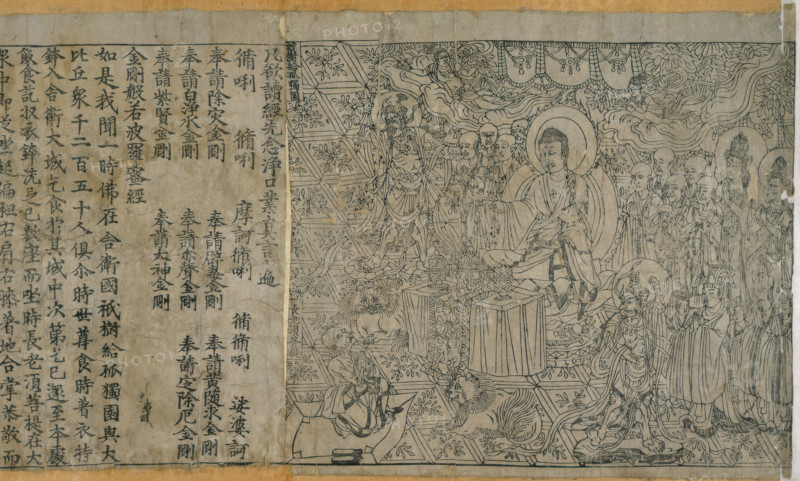 祇樹給孤獨園
凡欲讀經先念淨口業真言一遍
脩唎 脩唎 摩訶脩唎 脩脩唎 娑婆訶
奉請除灾金剛 奉請辟毒金剛 奉請黃隨求金剛
奉請白淨水金剛 奉請赤聲金剛 奉請定除厄金剛
奉請紫賢金剛 奉請大神金剛
金剛般若波羅蜜經
如是我聞一時佛在舍衛國祇樹給孤獨園與大
比丘衆千二百五十人俱尒時世尊食時著衣持
鉢入舍衛大城乞食於其城中次第乞已還至本處
飯食訖収衣鉢洗足已敷座而坐時長老湏菩提在大
衆中即從坐起偏袒右肩右膝著地合掌恭敬而
PHOTO12